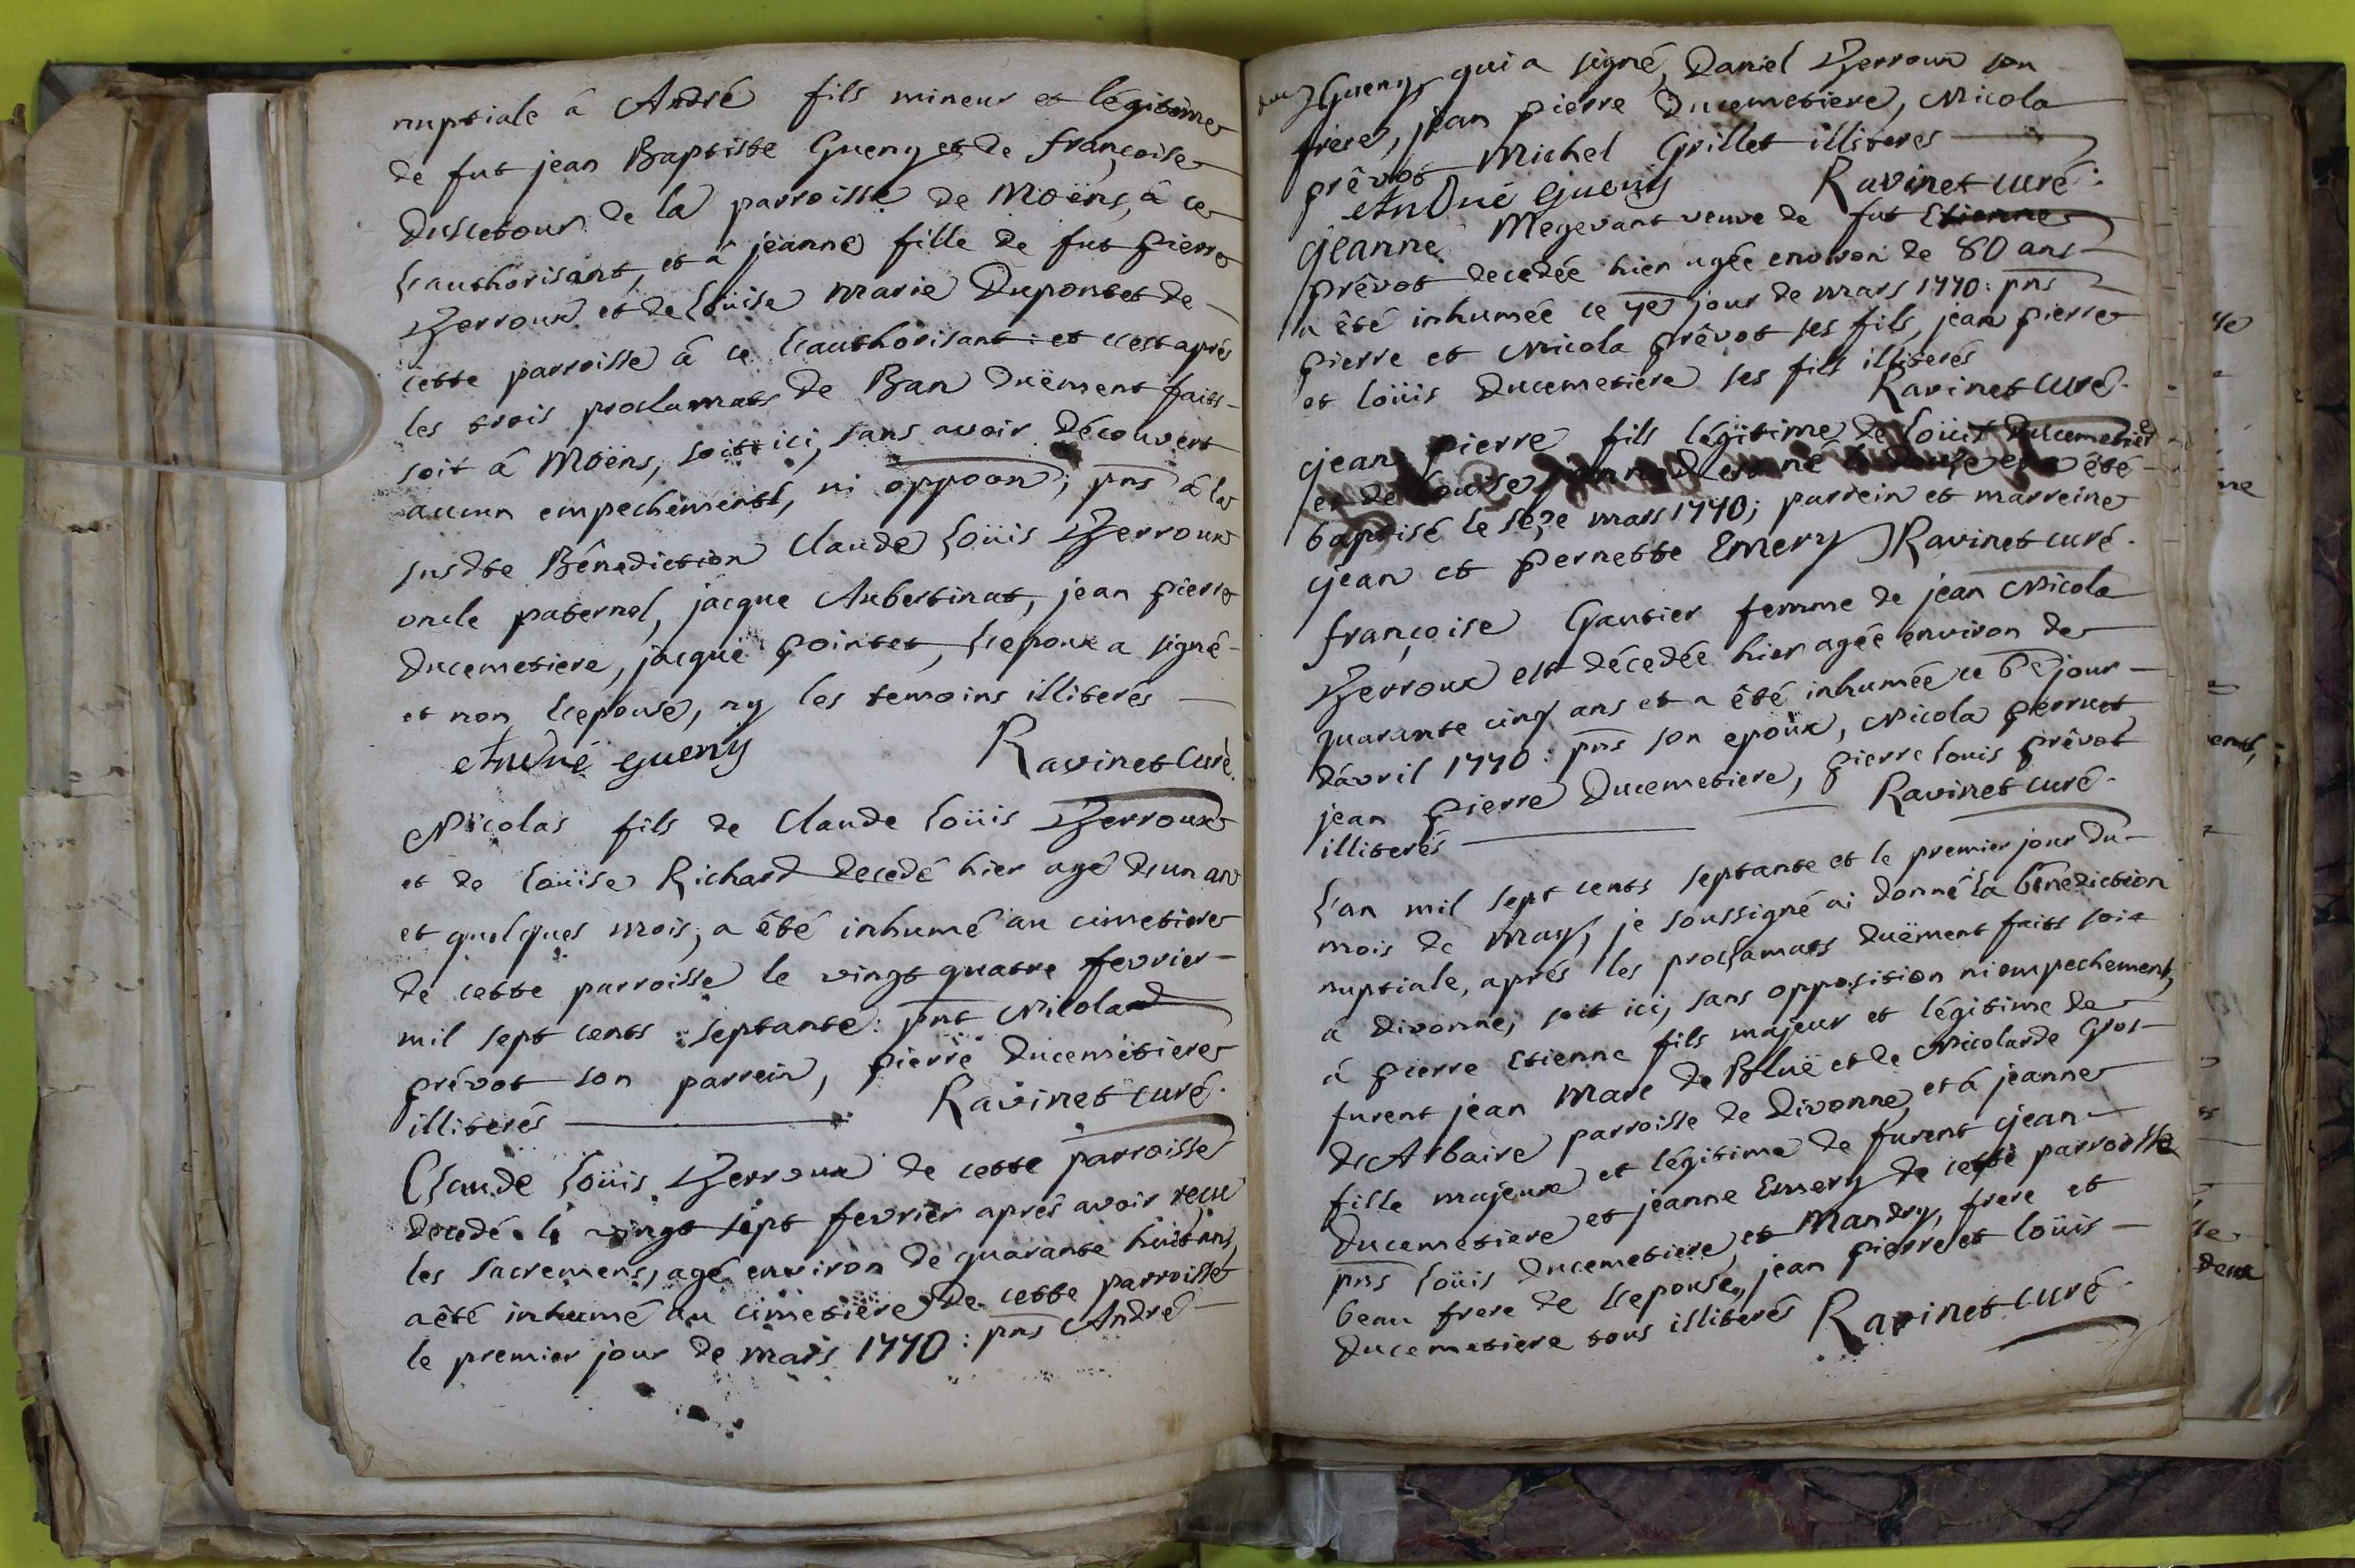 nuptiale â André fils mineur et légitime
de fut jean Baptiste Gueny et de françoise
Duscetour de la parroisse de Moëns, â ce
l'authorisant, et â jeanne fille de fut pierre
Zerroux et de Loüise marie Dupontet de
cette parroisse â ce l'authorisant: et c'est aprés
les trois proclamats de Ban duëment faits
soit â Moëns, soit ici, sans avoir découvert
aucun empechement, ni oppoon; pns â la
susdte Bénediction Claude Loüis Zerroux
oncle paternel, jacque Aubertinat, jean pierre
Ducemetiere, jacque pointet, L'epoux a signé
et non L'epouse, ny les temoins illiterés
André gueny Ravinet Curé.
Nicolas fils de Claude Loüis Zerroux
et de Loüise Richard decedé hier agé d'un an
et quelques mois, a êté inhumé au cimetiere
de cette parroisse le vingt quatre fevrier
mil sept cents septante: pnt Nicola
prévot son parrein, pierre Ducemétiere
illiterés Ravinet curé.
Claude Loüis Zerroux de cette parroisse
decedé le vingt sept fevrier aprés avoir reçu
les sacremens, agé environ de quarante huit ans,
a êté inhumé au cimetiere de cette parroisse
le premier jour de mars 1770: pns André
Gueny qui a signé, Daniel Zerroux son
frere, jean pierre Ducemetiere, Nicola
prêvot Michel Grillet illiteres
André gueny Ravinet curé.
jeanne Megevant veuve de fut Etienne
prêvot decedée hier agée environ de 80 ans
a êté inhumée ce 7e jour de mars 1770: pns
pierre et Nicola prêvot ses fils, jean pierre
et loüis Ducemetiere ses fils illiterés
Ravinet Curé.
jean pierre fils légitime de Loüis Ducemetiere
et de Louise est né et a êté
baptisé le seze mars 1770; parrein et marreine
jean et pernette Emery Ravinet curé.
françoise Gautier femme de jean Nicola
Zerroux est décedée hier agée environ de
quarante cinq ans et a êté inhumée ce 6e jour
d'avril 1770: pns son epoux, Nicola perruet
jean pierre Ducemetiere, pierre louis prêvot
illiterés Ravinet curé.
L'an mil sept cents septante et le premier jour du
mois de may, je soussigné ai donné la bénediction
nuptiale, aprés les proclamats duëment faits soit
â divonne, soit ici, sans opposition ni empechement,
â pierre Etienne fils majeur et légitime de
furent jean Marc de Bluë et de Nicolarde Gros
d'Arbaire parroisse de Divonne, et â jeanne
fille majeure et légitime de furent jean
Ducemetiere et jeanne Emery de cette parroisse
pns Loüis Ducemetiere, et Mandry, frere et
beau frere de L'epouse, jean pierre et loüis
Ducemetiere tous illiterés Ravinet curé.